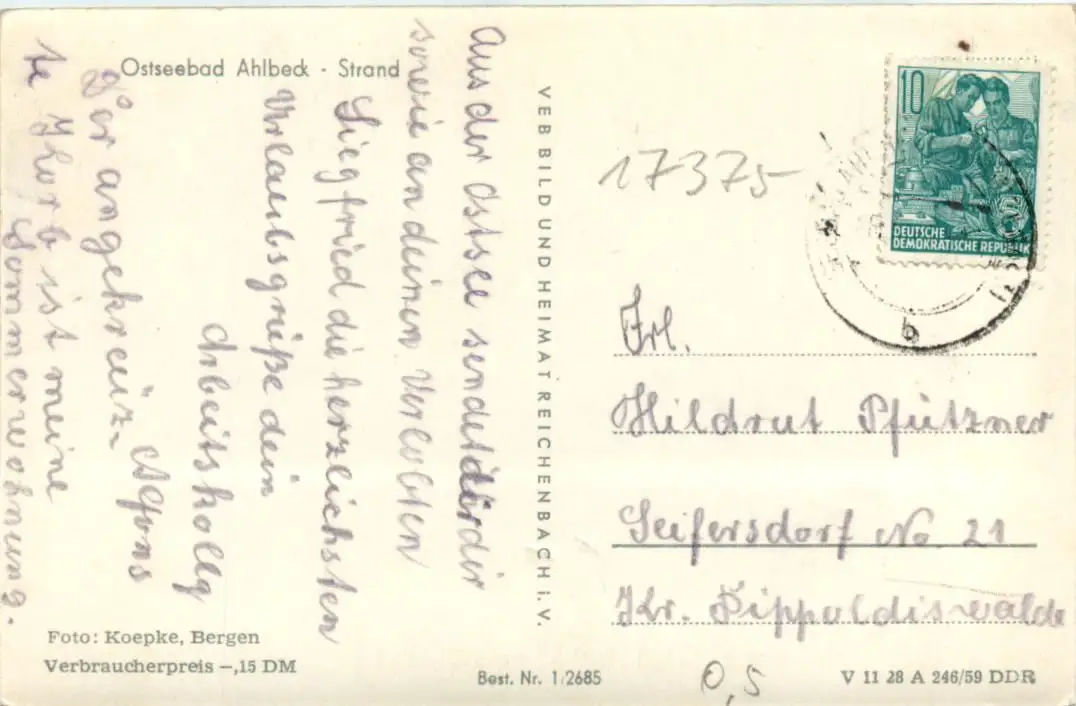 Ostseebad Ahlbeck · Strand
Aus der Ostsee sendet dir
sowie an deinen Verlobten
Siegfried die herzlichsten
Urlaubsgrüße dein
Arbeitskollg
Alfons
Der angekreüz-
te Khorb ist meine
Sommerwohnung.
Foto: Koepke, Bergen
Verbraucherpreis –,15 DM
VEB BILD UND HEIMAT REICHENBACH I. V.
Best. Nr. 1/2685
17375
10
DEUTSCHE
DEMOKRATISCHE REPUBLIK
b
Frl.
Hildrut Pfützner
Seifersdorf No. 21
Kr. Dippoldiswalde
0,5
V 11 28 A 246/59 DDR